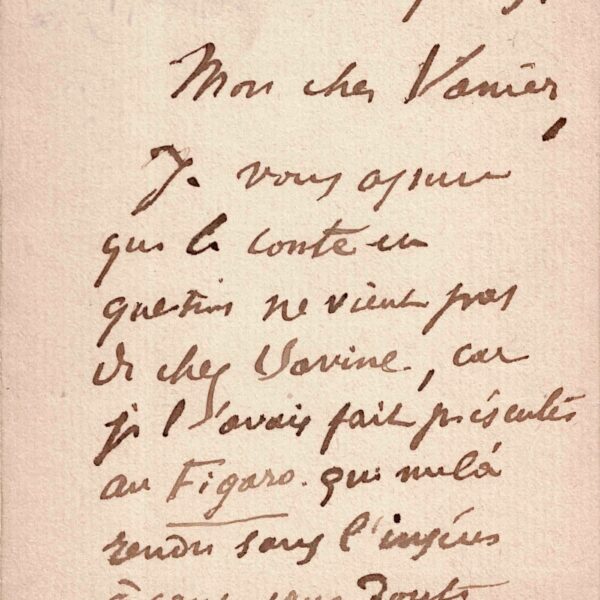 Mon cher Vanier,
Je vous assure
que le conte en
question ne vient pas
de chez Savine, car
je l'avais fait présenter
au Figaro qui me l'a
rendu sans l'insérer
à cause sans doute